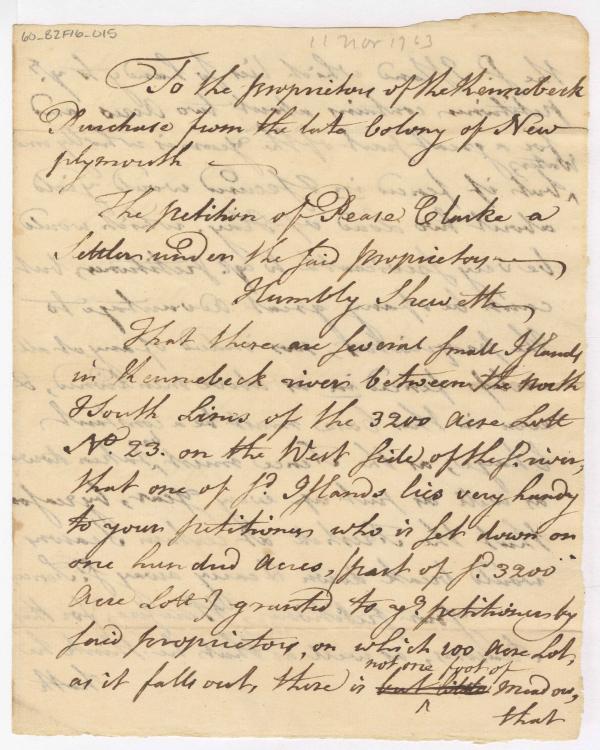 60_B2F16_015
11 Nov 1763
To the proprietors of the Kennebeck
Purchase from the late Colony of New
plymouth
The petition of Pease Clarke a
Settler under the said proprietors
Humbly Sheweth
That there are several small Islands
in Kennebeck river between the North
& South Lines of the 3200 Acre Lott
No. 23. on the West side of the sd. river,
that one of sd. Islands lies very handy
to your petitioner who is set down on
one hundd Acres, (part of sd. 3200
Acre Lott) granted to yr. petitioner by
said proprietors, on which 100 Acre Lot,
not one foot of
as it falls out, there is but little Meadow,
that